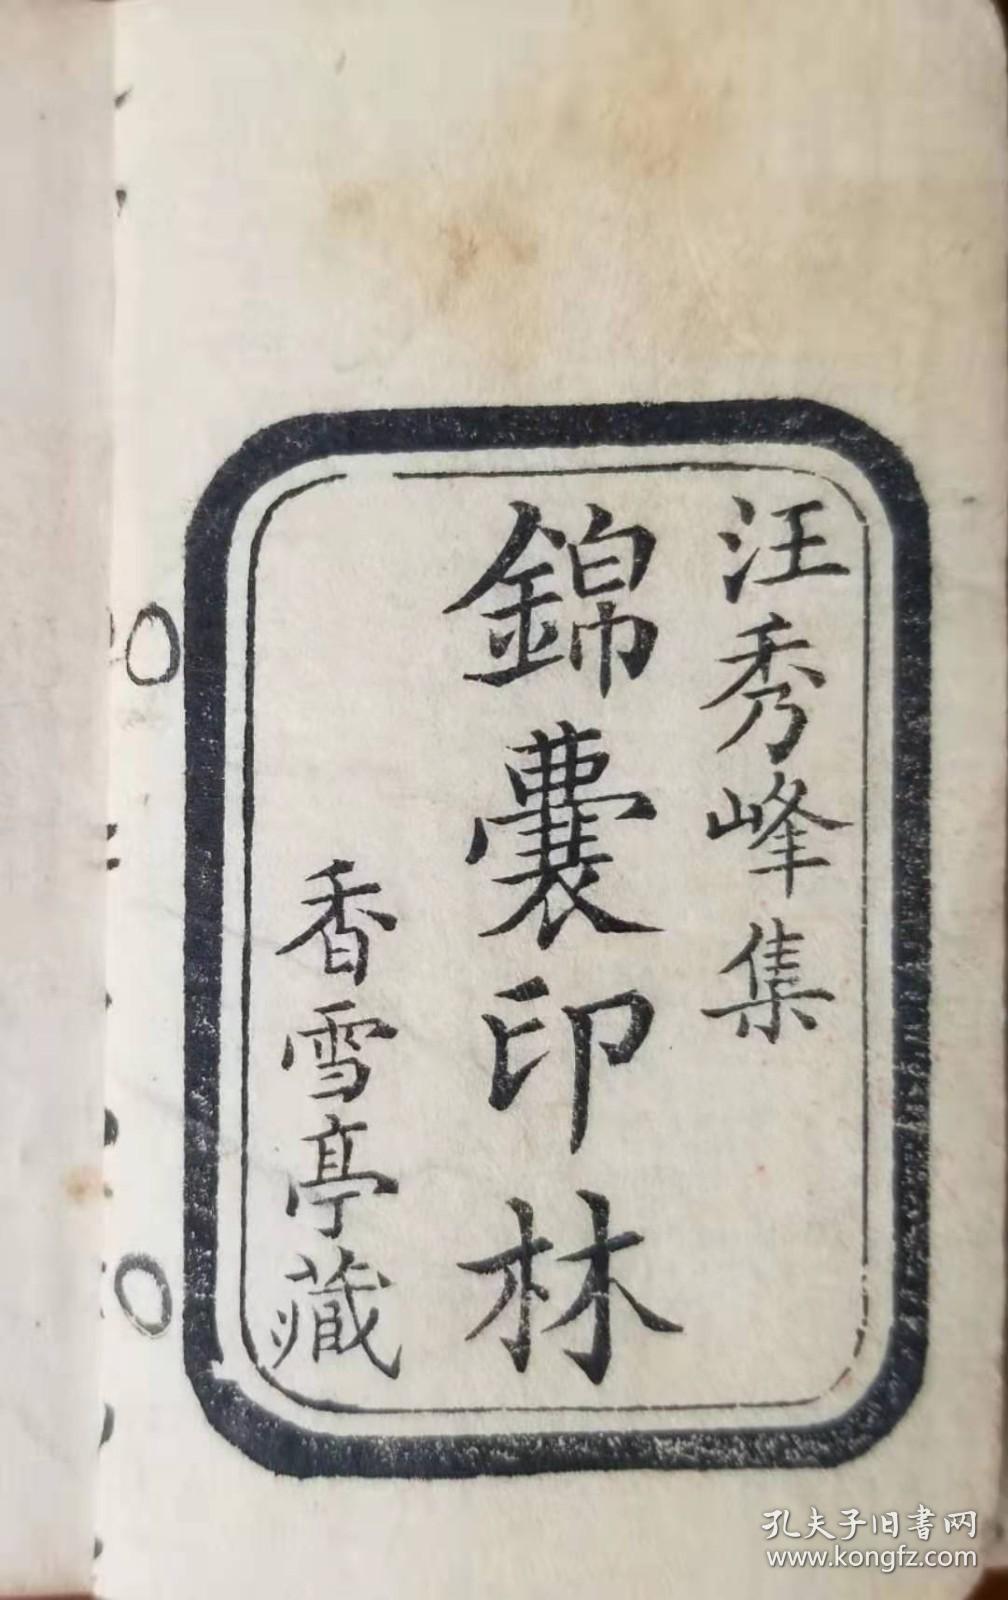 汪秀峰集
錦囊印林
香雪亭藏
孔夫子旧書网
www.kongfz.com